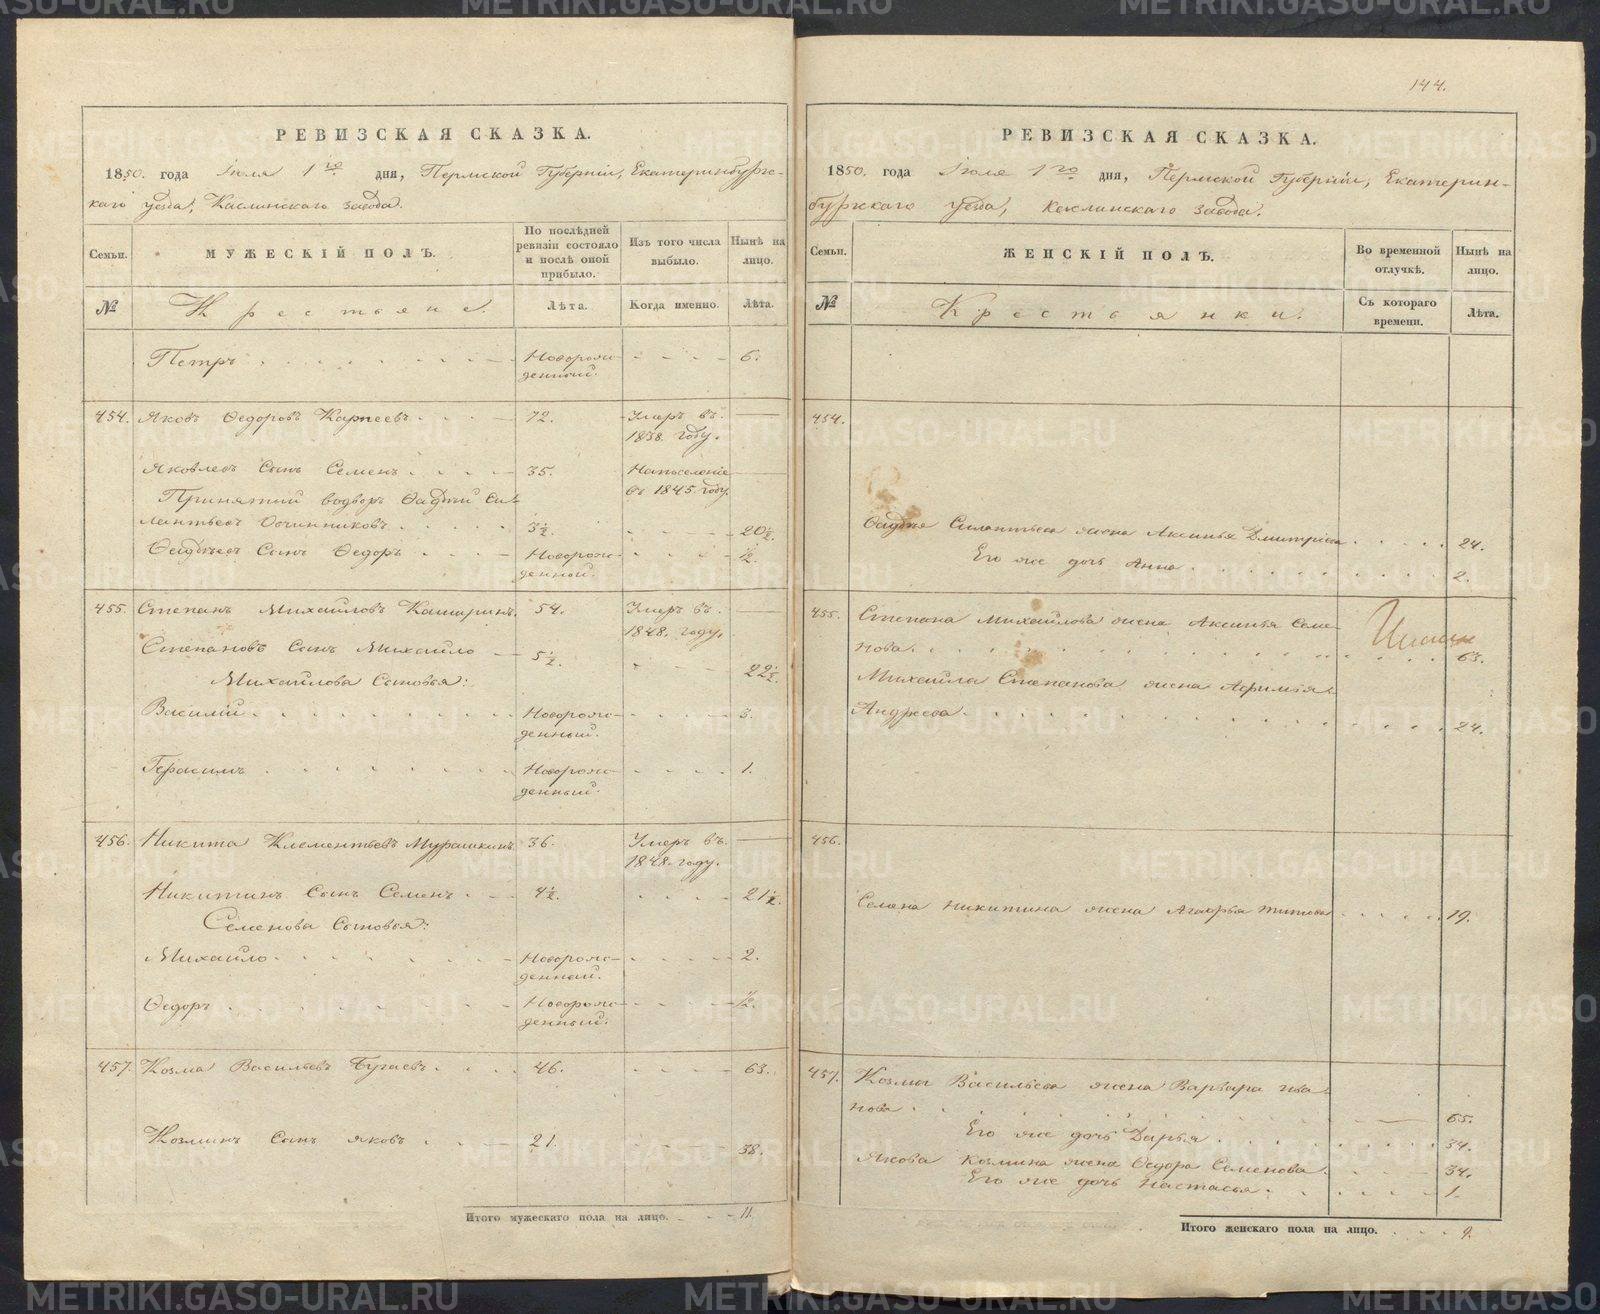 РЕВИЗСКАЯ СКАЗКА.
1850. года Іюля 1го дня, Пермской Губерніи, Екатеринбургс-
каго уезда, Каслинскаго завода.
Семьи.
МУЖЕСКІЙ ПОЛЪ.
По послѣдней ревизіи состояло и послѣ оной прибыло.
Изъ того числа выбыло.
Нынѣ на лицо.
№
Крестьяне.
Лѣта.
Когда именно.
Лѣта.
Петръ Новорож- 6.
денный.
454. Яковъ Ѳедоровъ Карпеевъ 72. Умеръ въ
1838. году.
Яковлевъ Сынъ Семенъ 35. Напоселеніе
въ 1845. году.
Принятый водворъ Фадѣй Си-
лантьевъ Овчинниковъ 3½. 20½.
Фадѣевъ Сынъ Ѳедоръ Новорож- ½.
денной.
455. Степанъ Михайловъ Каширинъ. 54. Умеръ въ
1848. году.
Степановъ Сынъ Михайло 5½. 22½.
Михайлова Сыновья:
Василій Новорож- 3.
денный.
Герасимъ Новорож- 1.
денный.
456. Никита Клементьевъ Мурашкинъ 36. Умеръ въ
1848. году.
Никитинъ Сынъ Семенъ 4½. 21½.
Семенова Сыновья:
Михайло Новорож- 2.
денный.
Ѳедоръ Новорож- ½.
денный.
457. Козма Васильевъ Бугаевъ 46. 63.
Козминъ Сынъ Яковъ 21. 38.
Итого мужескаго пола на лицо. 11.
144.
РЕВИЗСКАЯ СКАЗКА.
1850. года Іюля 1го дня, Пермской Губерніи, Екатерин-
бургскаго уезда, Каслинскаго завода.
Семьи.
ЖЕНСКІЙ ПОЛЪ.
Во временной отлучкѣ.
Нынѣ на лицо.
№
Крестьянки.
Съ котораго времени.
Лѣта.
454.
Фадѣя Силантьева жена Аксинья Дмитріева 24.
Его же дочь Анна 2.
455. Степана Михайлова жена Аксинья Семе-
нова. 63.
Михайла Степанова жена Афимья
Андреева. 24.
456.
Семена Никитина жена Агафья Титова 19.
457. Козмы Васильева жена Варвара Ива-
нова 65.
Его же дочь Дарья 34.
Якова Козмина жена Ѳедора Семенова 34.
Его же дочь Настасья 1.
Итого женскаго пола на лицо. 9.
METRIKI.GASO-URAL.RU